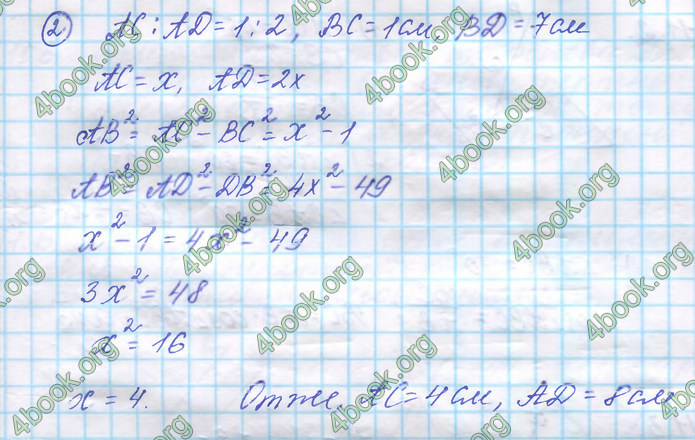 2) AC : AD = 1 : 2, BC = 1 см, BD = 7 см
AC = x, AD = 2x
AB² = AC² - BC² = x² - 1
AB² = AD² - DB² = 4x² - 49
x² - 1 = 4x² - 49
3x² = 48
x² = 16
x = 4. Отже, AC = 4 см, AD = 8 см
4book.org
4book.org
4book.org
4book.org
4book.org
4book.org
4book.org
4book.org
4book.org
4book.org
4book.org
4book.org